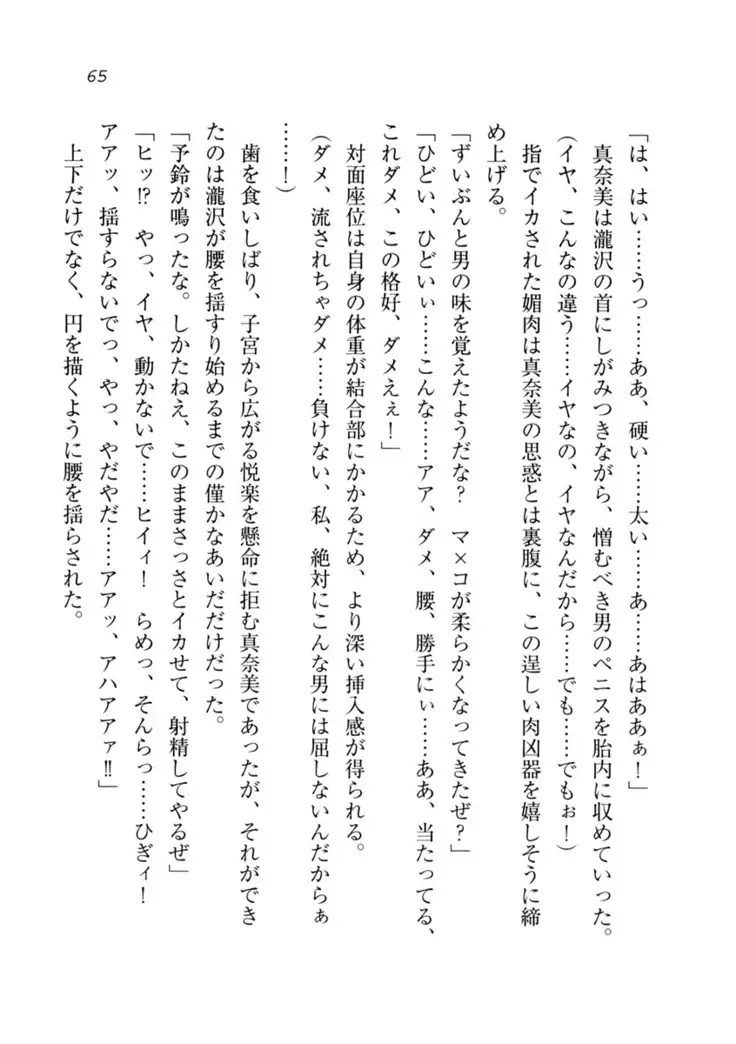 65
「は、はい……うっ……ああ、硬い……太い……あ……あはああぁ！」
真奈美は瀧沢の首にしがみつきながら、憎むべき男のペニスを胎内に収めていった。
（イヤ、こんなの違う……イヤなの、イヤなんだから……でも……でもぉ！）
指でイカされた媚肉は真奈美の思惑とは裏腹に、この逞しい肉凶器を嬉しそうに締
め上げる。
「ずいぶんと男の味を覚えたようだな？　マ×コが柔らかくなってきたぜ？」
「ひどい、ひどいぃ……こんな……アア、ダメ、腰、勝手にぃ……ああ、当たってる、
これダメ、この格好、ダメえぇ！」
対面座位は自身の体重が結合部にかかるため、より深い挿入感が得られる。
（ダメ、流されちゃダメ……負けない、私、絶対にこんな男には屈しないんだからぁ
……！）
歯を食いしばり、子宮から広がる悦楽を懸命に拒む真奈美であったが、それができ
たのは瀧沢が腰を揺すり始めるまでの僅かなあいだだけだった。
「予鈴が鳴ったな。しかたねえ、このままさっさとイカせて、射精してやるぜ」
「ヒッ!?　やっ、イヤ、動かないで……ヒイィ！　らめっ、そんらっ……ひぎィ！
アアッ、揺すらないでっ、やっ、やだやだ……アアッ、アハアアァ‼」
上下だけでなく、円を描くように腰を揺らされた。